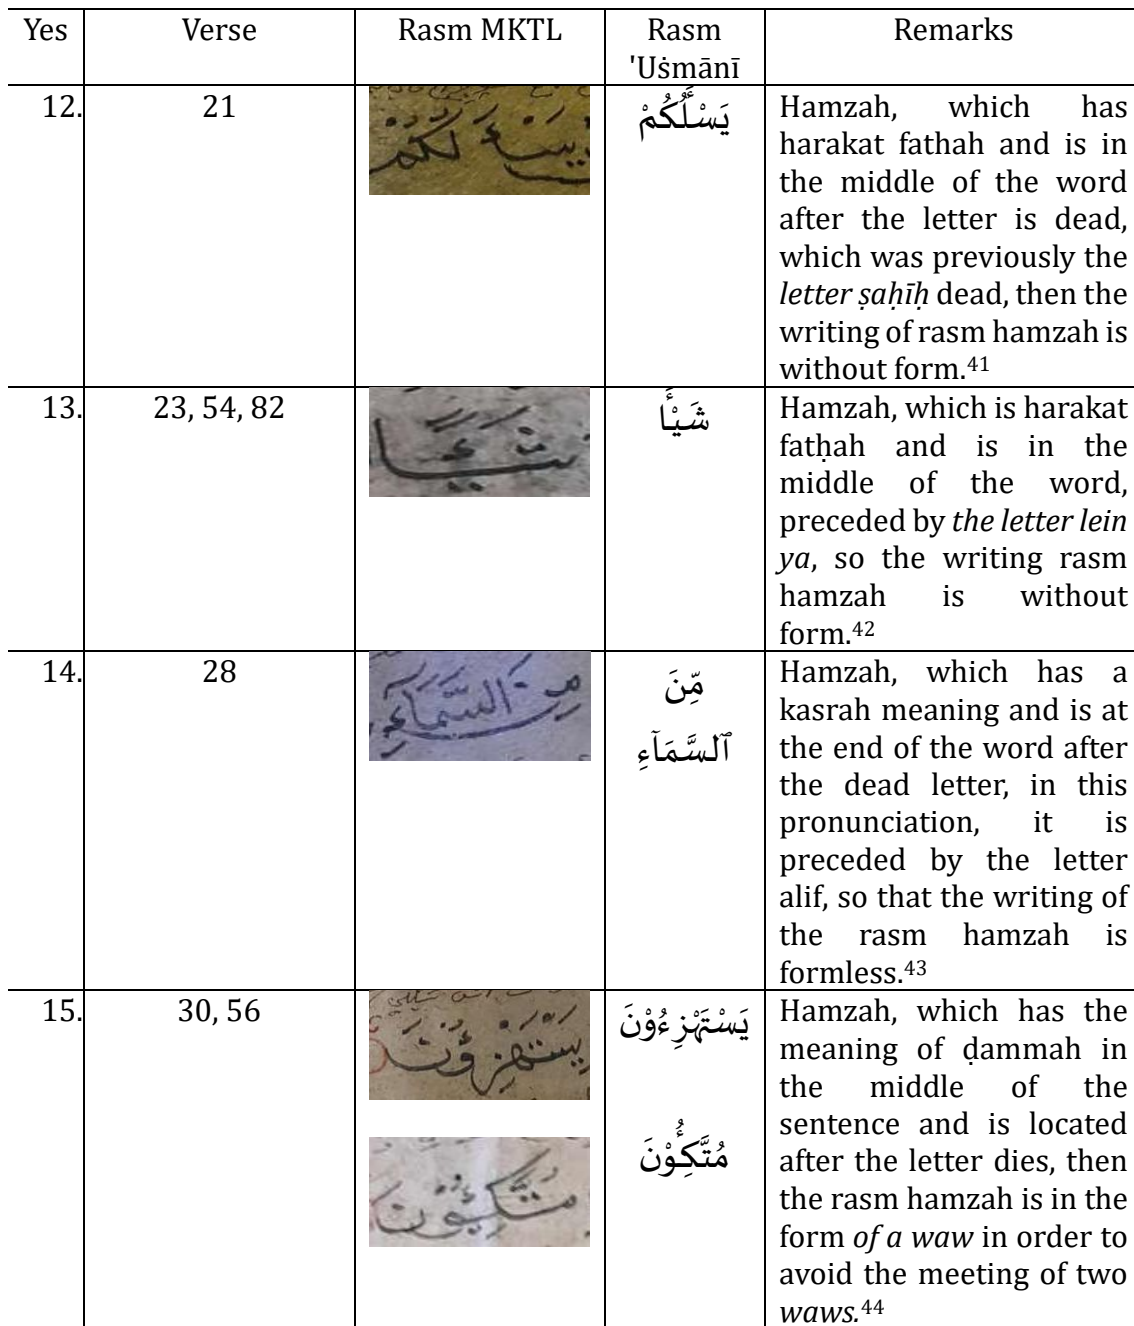 Yes Verse Rasm MKTL Rasm 'Uṡmānī Remarks
12. 21 يَسْـَٔلُكُمْ Hamzah, which has
harakat fathah and is in
the middle of the word
after the letter is dead,
which was previously the
letter ṣaḥīḥ dead, then the
writing of rasm hamzah is
without form.41
13. 23, 54, 82 شَيْئًا شَيْـًٔا Hamzah, which is harakat
fatḥah and is in the
middle of the word,
preceded by the letter lein
ya, so the writing rasm
hamzah is without
form.42
14. 28 مِنَ السَّمَآءِ مِّنَ
ٱلسَّمَآءِ
Hamzah, which has a
kasrah meaning and is at
the end of the word after
the dead letter, in this
pronunciation, it is
preceded by the letter
alif, so that the writing of
the rasm hamzah is
formless.43
15. 30, 56 يَسْتَهْزِؤُنَ يَسْتَهْزِءُوْنَ
مُتَّكِئُوْنَ مُتَّكِـُٔوْنَ
Hamzah, which has the
meaning of ḍammah in
the middle of the
sentence and is located
after the letter dies, then
the rasm hamzah is in the
form of a waw in order to
avoid the meeting of two
waws.44